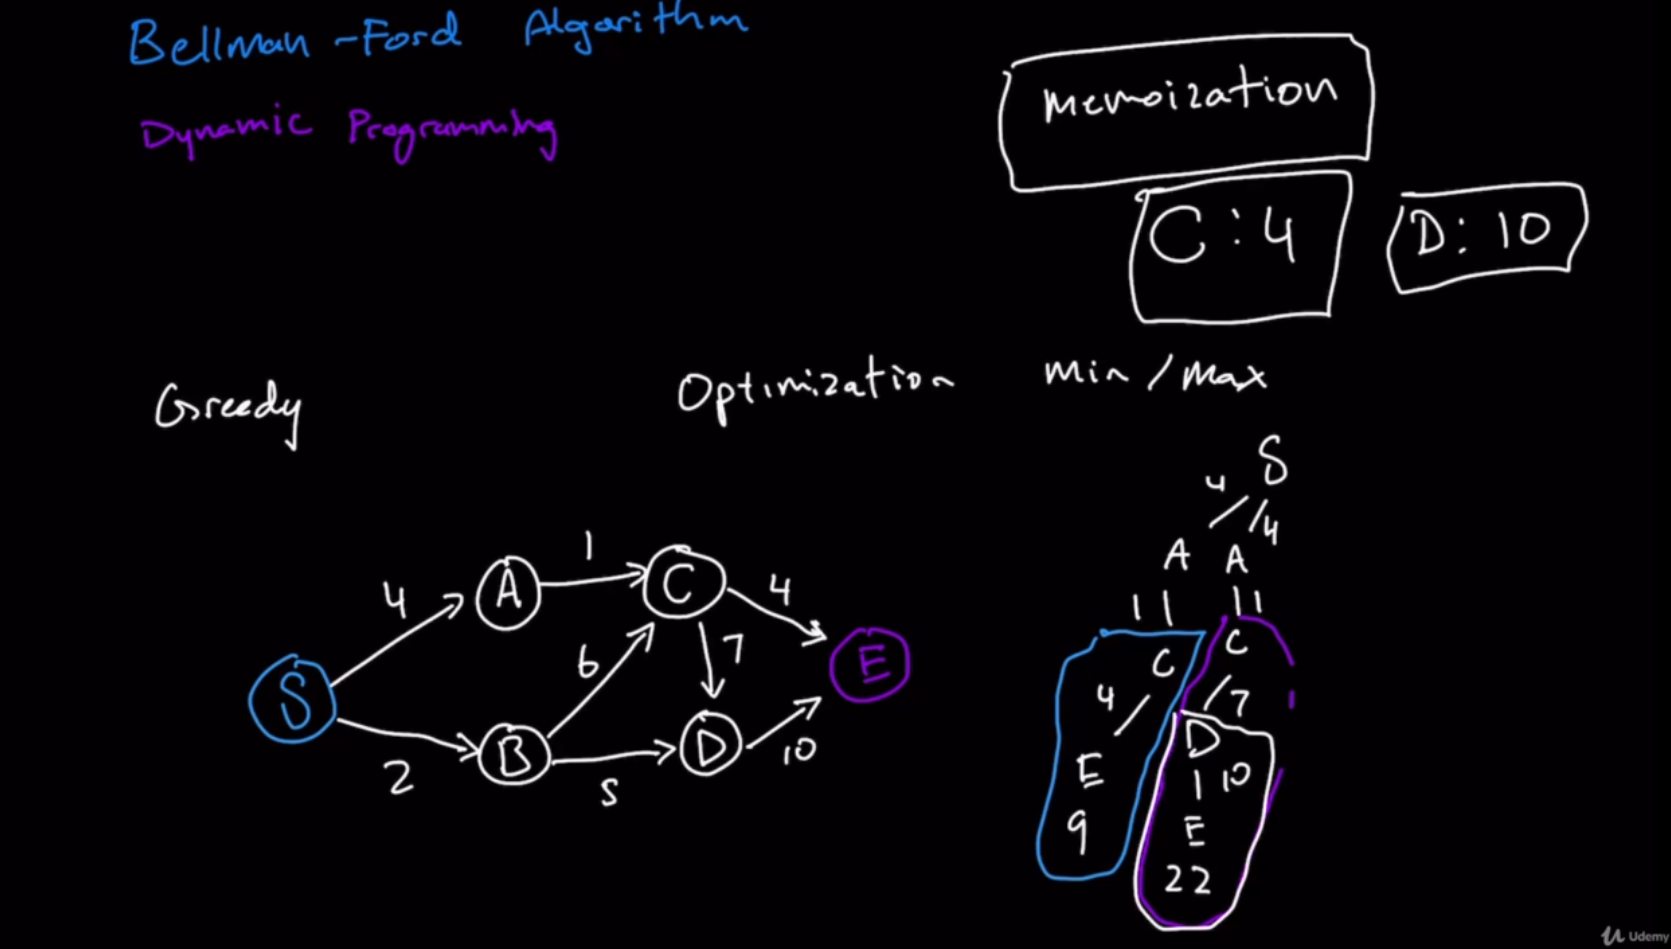 Bellman-Ford Algorithm
Dynamic Programming
Memoization
C:4
D:10
Greedy
Optimization min/max
S
4
4
A
A
1
1
C
C
4
7
E
D
9
10
E
22
4
A
1
C
4
S
6
7
E
2
B
5
D
10
Udemy